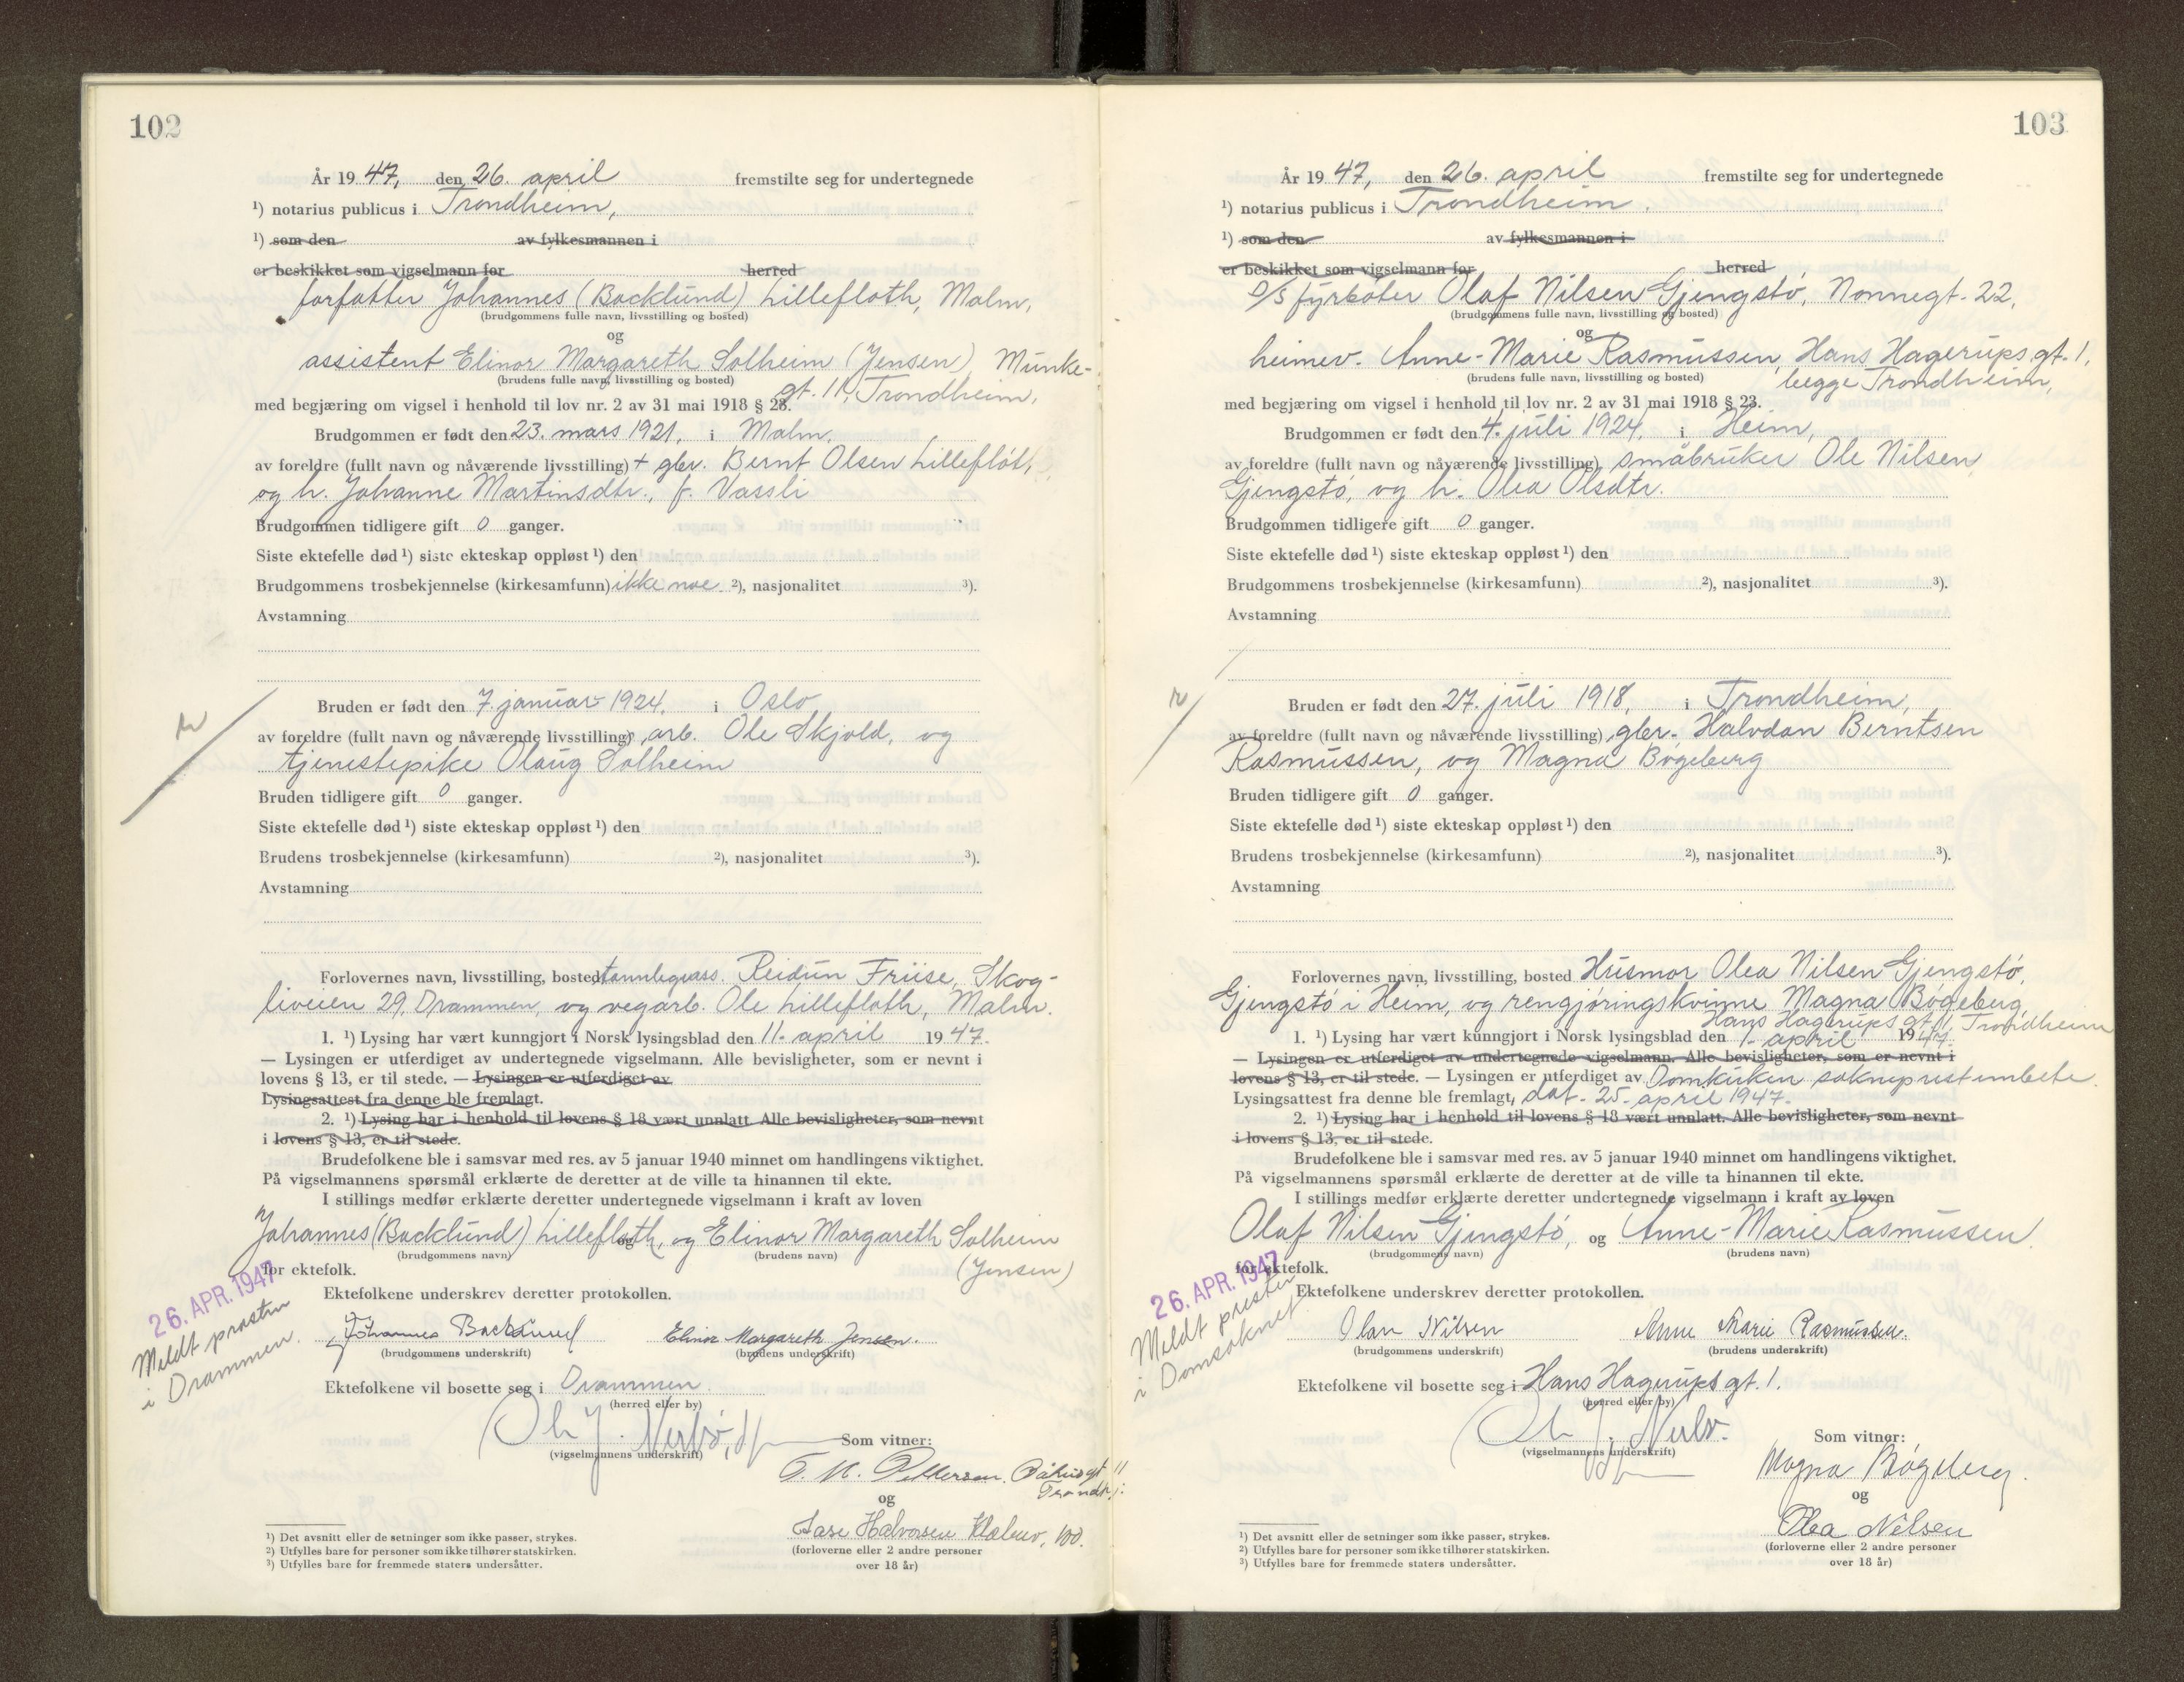 102
År 19 47, den 26. april fremstilte seg for undertegnede
¹) notarius publicus i Trondheim,
¹) som den av fylkesmannen i
er beskikket som vigselmann for herred
forfatter Johannes (Backlund) Lillefloth, Malm,
(brudgommens fulle navn, livsstilling og bosted)
og
assistent Elinor Margareth Solheim (Jensen), Munke-
(brudens fulle navn, livsstilling og bosted)
gt. 11, Trondheim,
med begjæring om vigsel i henhold til lov nr. 2 av 31 mai 1918 § 23.
Brudgommen er født den 23. mars 1921, i Malm,
av foreldre (fullt navn og nåværende livsstilling) + gbr. Bernt Olsen Lillefløt,
og h. Johanne Martinsdtr., f. Vassli
Brudgommen tidligere gift 0 ganger.
Siste ektefelle død ¹) siste ekteskap oppløst ¹) den
Brudgommens trosbekjennelse (kirkesamfunn) ikke noe ²), nasjonalitet ³).
Avstamning
Bruden er født den 7. januar 1924, i Oslo
av foreldre (fullt navn og nåværende livsstilling), arb. Ole Skjold, og
tjenestepike Olaug Solheim
Bruden tidligere gift 0 ganger.
Siste ektefelle død ¹) siste ekteskap oppløst ¹) den
Brudens trosbekjennelse (kirkesamfunn) ²), nasjonalitet ³).
Avstamning
Forlovernes navn, livsstilling, bosted tannlegeass. Reidun Friise, Skog-
liveien 29, Drammen, og vegarb. Ole Lillefloth, Malm.
1. ¹) Lysing har vært kunngjort i Norsk lysingsblad den 11. april 19 47.
— Lysingen er utferdiget av undertegnede vigselmann. Alle bevisligheter, som er nevnt i
lovens § 13, er til stede. — Lysingen er utferdiget av
Lysingsattest fra denne ble fremlagt.
2. ¹) Lysing har i henhold til lovens § 18 vært unnlatt. Alle bevisligheter, som nevnt
i lovens § 13, er til stede.
Brudefolkene ble i samsvar med res. av 5 januar 1940 minnet om handlingens viktighet.
På vigselmannens spørsmål erklærte de deretter at de ville ta hinannen til ekte.
I stillings medfør erklærte deretter undertegnede vigselmann i kraft av loven
Johannes (Backlund) Lillefloth, og Elinor Margareth Solheim
(brudgommens navn) (brudens navn)
(Jensen)
for ektefolk.
26. APR. 1947
Meldt prosten
i Drammen.
Ektefolkene underskrev deretter protokollen.
Johannes Backlund Elinor Margareth Jensen.
(brudgommens underskrift) (brudens underskrift)
Ektefolkene vil bosette seg i Drammen
(herred eller by)
(vigselmannens underskrift)
Som vitner:
Pettersen
og
Aase Halvorsen
(forloverne eller 2 andre personer
over 18 år)
¹) Det avsnitt eller de setninger som ikke passer, strykes.
²) Utfylles bare for personer som ikke tilhører statskirken.
³) Utfylles bare for fremmede staters undersåtter.
103
År 19 47, den 26. april fremstilte seg for undertegnede
¹) notarius publicus i Trondheim.
¹) som den av fylkesmannen i
er beskikket som vigselmann for herred
D/S fyrbøter Olaf Nilsen Gjengstø, Nonnegt. 22,
(brudgommens fulle navn, livsstilling og bosted)
og
heimev. Anne-Marie Rasmussen, Hans Hagerups gt. 1,
(brudens fulle navn, livsstilling og bosted)
begge Trondheim,
med begjæring om vigsel i henhold til lov nr. 2 av 31 mai 1918 § 23.
Brudgommen er født den 4. juli 1924, i Heim,
av foreldre (fullt navn og nåværende livsstilling), småbruker Ole Nilsen
Gjengstø, og h. Olea Olsdtr.
Brudgommen tidligere gift 0 ganger.
Siste ektefelle død ¹) siste ekteskap oppløst ¹) den
Brudgommens trosbekjennelse (kirkesamfunn) ²), nasjonalitet ³).
Avstamning
Bruden er født den 27. juli 1918, i Trondheim,
av foreldre (fullt navn og nåværende livsstilling), gbr. Halvdan Berntsen
Rasmussen, og Magna Bøgeberg
Bruden tidligere gift 0 ganger.
Siste ektefelle død ¹) siste ekteskap oppløst ¹) den
Brudens trosbekjennelse (kirkesamfunn) ²), nasjonalitet ³).
Avstamning
Forlovernes navn, livsstilling, bosted Husmor Olea Nilsen Gjengstø,
Gjengstø i Heim, og rengjøringskvinne Magna Bøgeberg,
Hans Hagerups gt. 1, Trondheim
1. ¹) Lysing har vært kunngjort i Norsk lysingsblad den 1. april 19 47.
— Lysingen er utferdiget av undertegnede vigselmann. Alle bevisligheter, som er nevnt i
lovens § 13, er til stede. — Lysingen er utferdiget av Domkirken sokneprestembete.
Lysingsattest fra denne ble fremlagt, dat. 25. april 1947.
2. ¹) Lysing har i henhold til lovens § 18 vært unnlatt. Alle bevisligheter, som nevnt
i lovens § 13, er til stede.
Brudefolkene ble i samsvar med res. av 5 januar 1940 minnet om handlingens viktighet.
På vigselmannens spørsmål erklærte de deretter at de ville ta hinannen til ekte.
I stillings medfør erklærte deretter undertegnede vigselmann i kraft av loven
Olaf Nilsen Gjengstø, og Anne-Marie Rasmussen
(brudgommens navn) (brudens navn)
for ektefolk.
26. APR. 1947
Meldt presten
i Domsoknet
Ektefolkene underskrev deretter protokollen.
Olav Nilsen Anne Marie Rasmussen.
(brudgommens underskrift) (brudens underskrift)
Ektefolkene vil bosette seg i Hans Hagerups gt. 1.
(herred eller by)
(vigselmannens underskrift)
Som vitner:
Magna Bøgeberg.
og
Olea Nilsen
(forloverne eller 2 andre personer
over 18 år)
¹) Det avsnitt eller de setninger som ikke passer, strykes.
²) Utfylles bare for personer som ikke tilhører statskirken.
³) Utfylles bare for fremmede staters undersåtter.